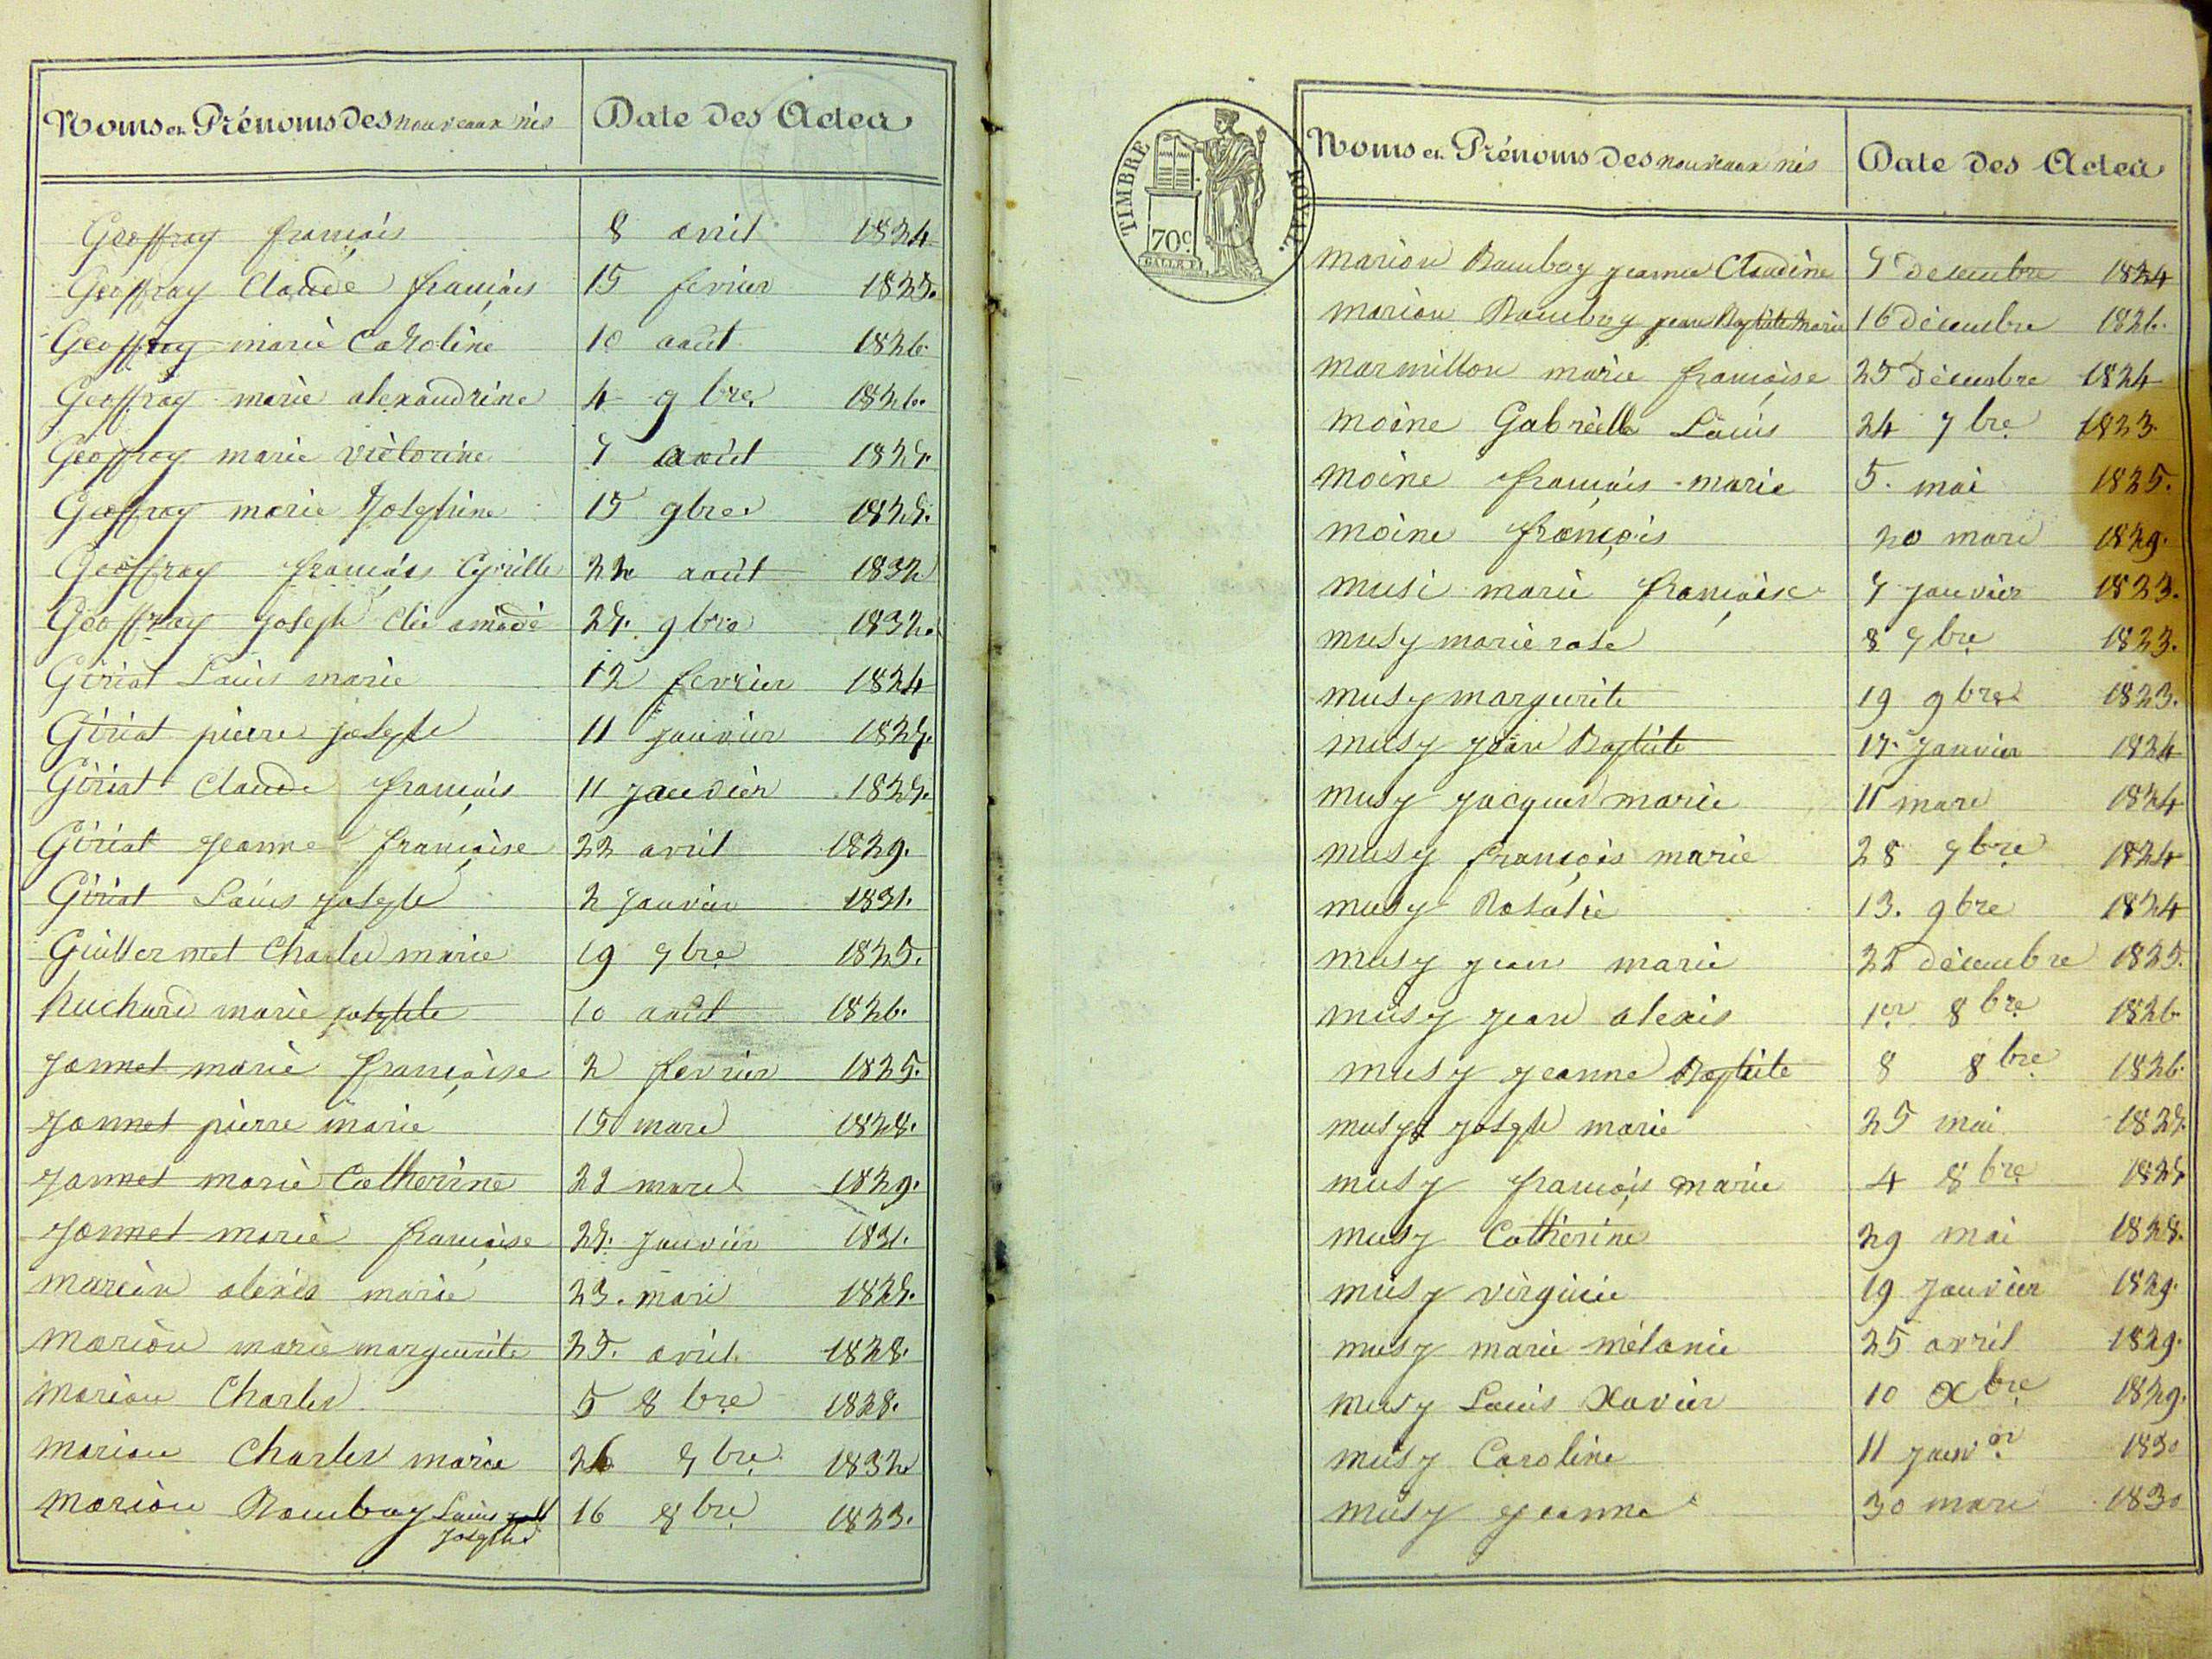 Noms et Prénoms des nouveaux nés Date des Actes
Geoffray françois 8 avril 1824
Geoffray Claude françois 15 fevrier 1825.
Geoffray marie Caroline 10 août 1826.
Geoffray marie alexandrine 4 9bre 1826.
Geoffray marie victorine 7 août 1827.
Geoffray marie Josephine 15 9bre 1827.
Geoffray françois Cyrille 22 août 1832
Geoffray joseph Clie amédé 27. 9bre 1832.
Giriat Louis marie 12 fevrier 1824
Giriat pierre joseph 11 janvier 1827.
Giriat Claude françois 11 janvier 1827.
Giriat Jeanne françoise 22 avril 1829.
Giriat Louis joseph 2 janvier 1831.
Guillermet Charles marie 19 7bre 1825.
huchard marie josephte 10 août 1826.
Jannet marie françoise 2 fevrier 1825.
Jannet pierre marie 15 mars 1828.
Jannet marie Catherine 22 mars 1829.
Jannet marie françoise 27. janvier 1831.
Marion alexis marie 23. mars 1827.
Marion marie marguerite 25. avril. 1828.
Marion Charles 5 8bre 1828.
Marion Charles marie 26 7bre 1832
Marion Ramboy Louis
Joseph 16 8bre 1823.
TIMBRE ROYAL.
70c.
Noms et Prénoms des nouveaux nés Date des Actes
Marion Ramboy jeanne Claudine 7 decembre 1824
Marion Ramboy jean Baptiste Marie 16 décembre 1826.
Marmillon marie françoise 25 décembre 1824
Moine Gabrielle Louis 24 7bre 1823.
Moine françois marie 5. mai 1825.
Moine françois 20 mars 1829.
Musi marie françoise 7 janvier 1823.
Musy marie rose 8 7bre 1823.
Musy marguerite 19 9bre 1823.
Musy Jean Baptiste 17. Janvier 1824
Musy Jacques marie 11 mars 1824
Musy françois marie 28 7bre 1824
Musy Rosalie 13. 9bre 1824
Musy jean marie 22 décembre 1825.
Musy jean alexis 1er 8bre 1826.
Musy jeanne Baptiste 8 8bre 1826.
Musy joseph marie 25 mai 1827.
Musy françois marie 4 8bre 1827
Musy Catherine 29 mai 1828.
Musy virginie 19 Janvier 1829.
Musy marie mélanie 25 avril 1829.
Musy Louis Xavier 10 Xbre 1829.
Musy Caroline 11 janver 1830
Musy jeanne 30 mars 1830